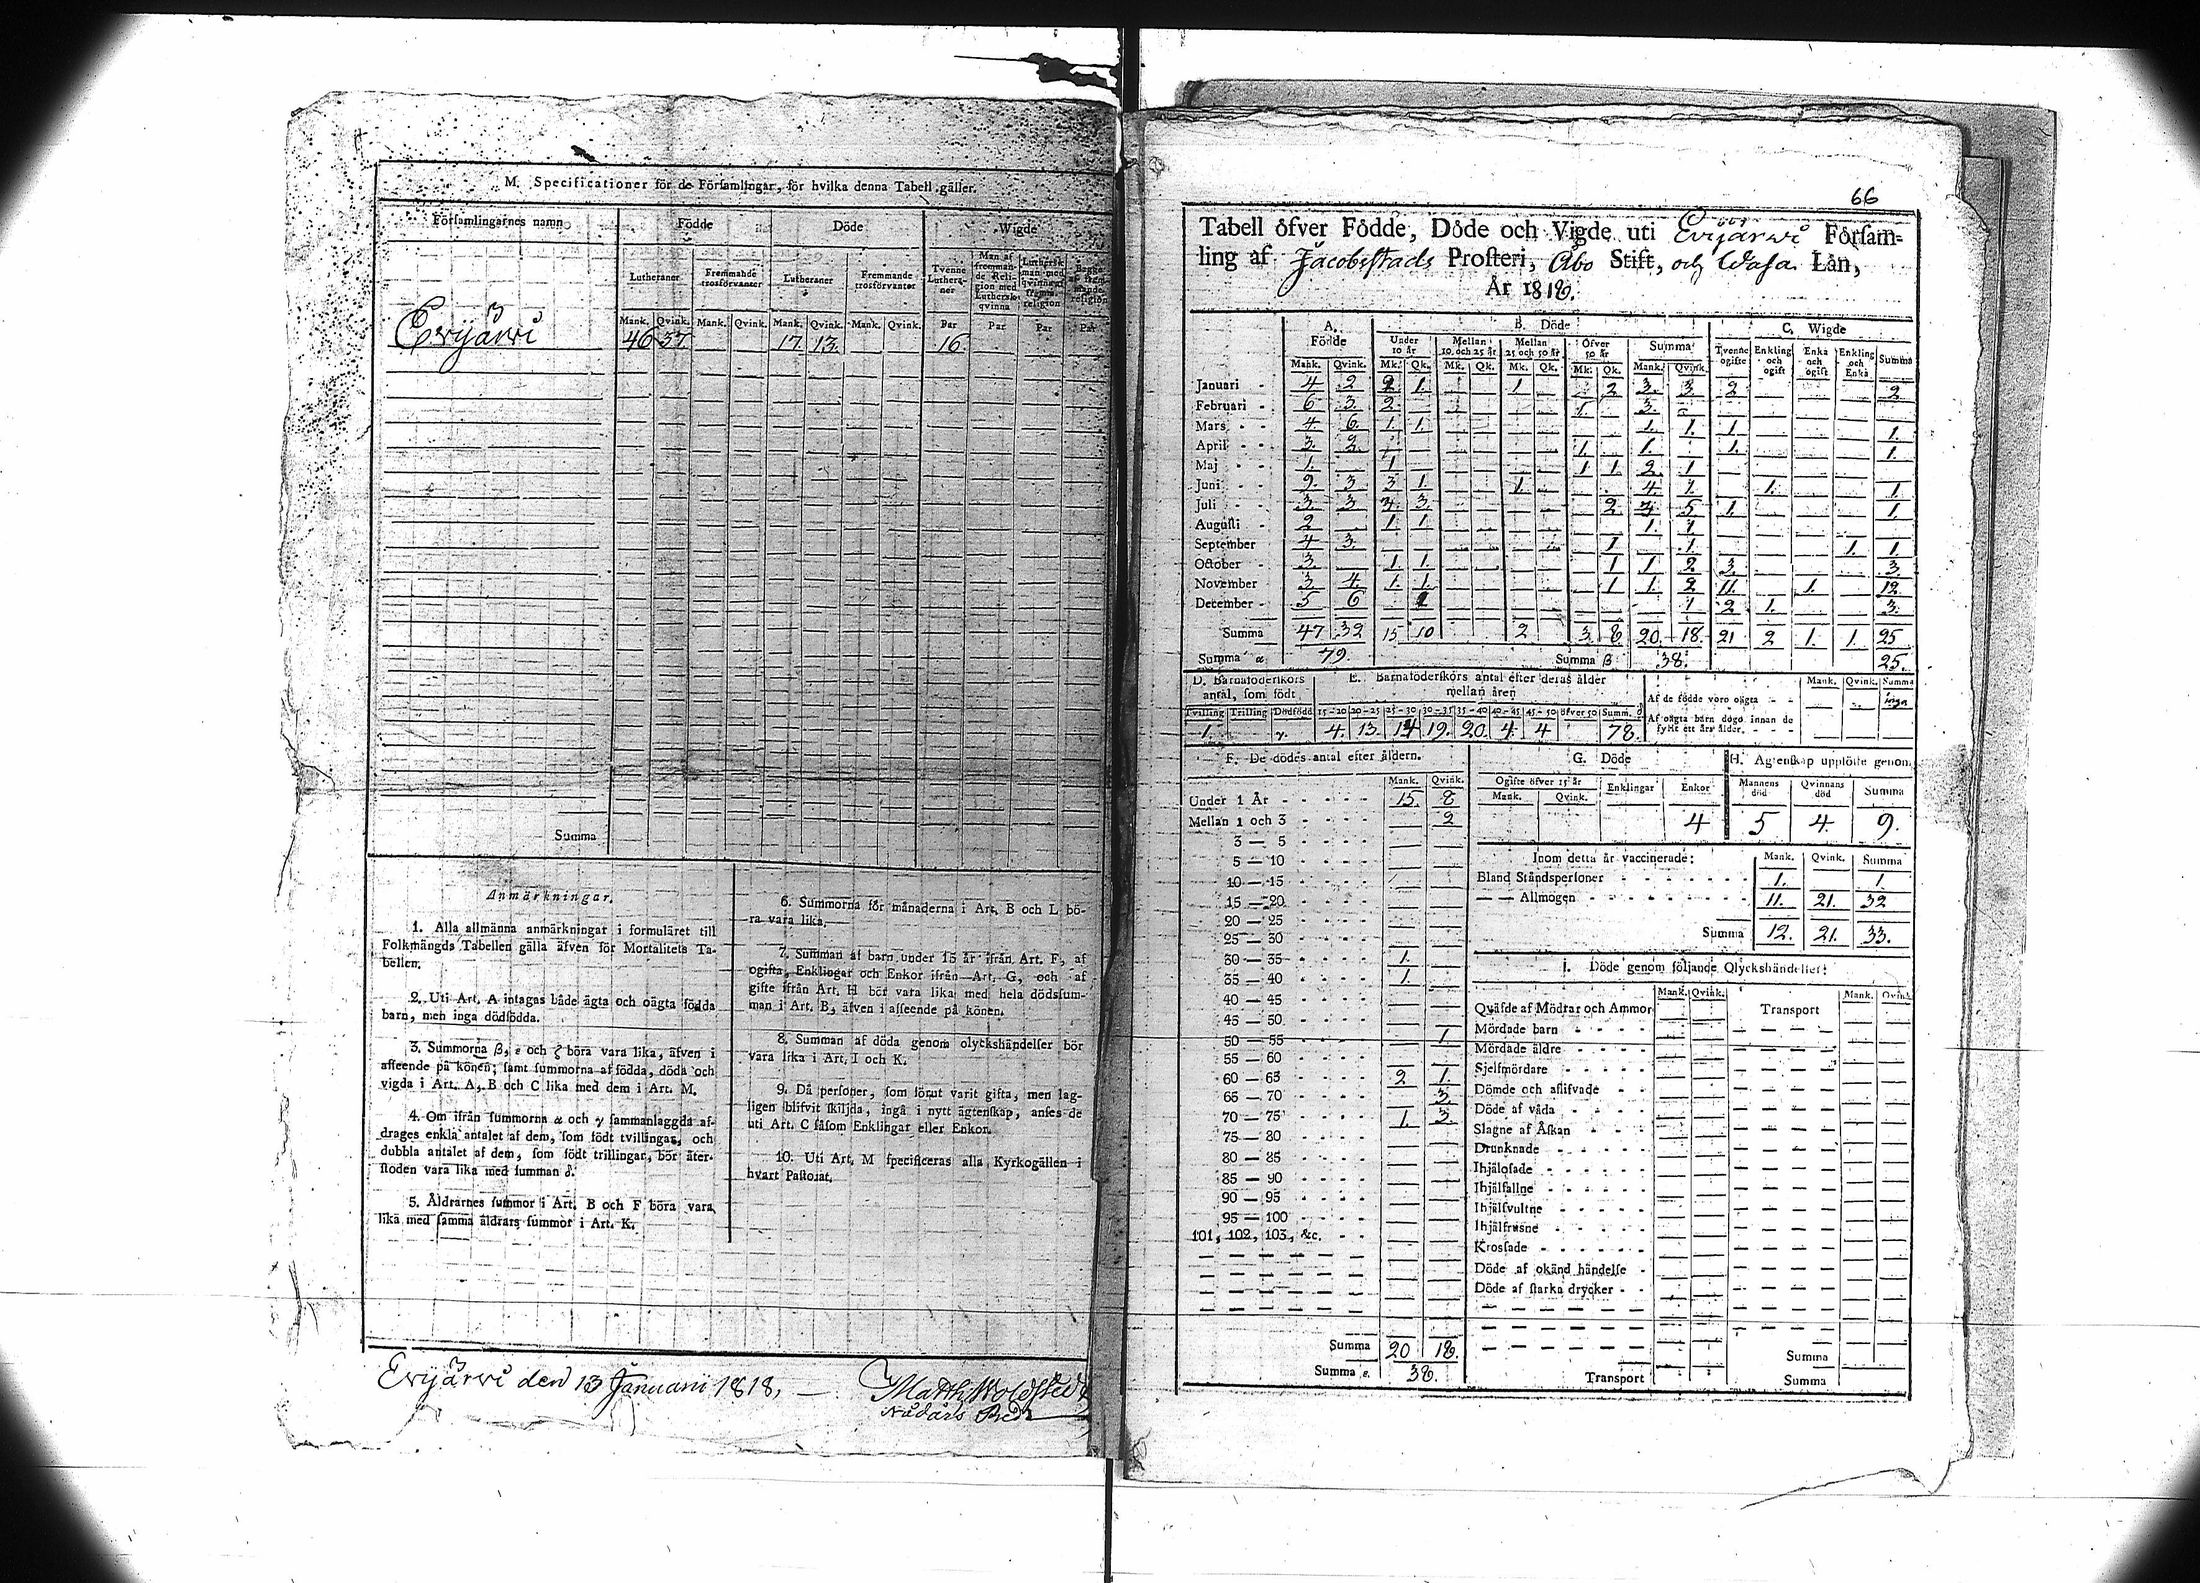 M. Specificationer för de Försumlingar, för hvilka denna Tabell gäller.
Församlingarnes namn Födde Döde Wigde
Lutheraner Fremmande trosförvanter Lutheraner Fremmande trosförvanter Tvenne Lutheraner Man af fremmande Religion med Luthersk qvinna Luthersk man med qvinna af fremde religion
Mank. Qvink. Mank. Qvink. Mank. Qvink. Mank. Qvink. Par Par Par Par
Evijärvi 46 37. 17. 13. 16.
Summa
Anmärkningar.
1. Alla allmänna anmärkningar i formuläret till
Folkmängds Tabellen gälla äfven för Mortalitets Ta-
bellen.
2. Uti Art. A intagas både ägta och oägta födda
barn, men inga dödfödda.
3. Summorna β, ε och ζ böra vara lika, äfven i
afseende på könen; samt summorna af födda, döda och
vigda i Art. A, B och C lika med dem i Art. M.
4. Om ifrån summorna α och γ sammanlaggda af-
drages enkla antalet af dem, som födt tvillingar, och
dubbla antalet af dem, som födt trillingar, bör åter-
stoden vara lika med summan δ.
5. Åldrarnes summor i Art. B och F böra vara
lika med samma åldrars summor i Art. K.
6. Summorna för månaderna i Art. B och L bö-
ra vara lika.
7. Summan af barn under 15 år ifrån Art. F, af
ogifta, Enklingar och Enkor ifrån Art. G, och af
gifte ifrån Art. H bör vara lika med hela dödssum-
man i Art. B, äfven i afseende på könen.
8. Summan af döda genom olyckshändelser bör
vara lika i Art. I och K.
9. Då personer, som förut varit gifta, men lag-
ligen blifvit skiljda, ingå i nytt ägtenskap, anses de
uti Art. C såsom Enklingar eller Enkor.
10. Uti Art. M specificeras alla Kyrkogällen i
hvart Pastorat.
Evijärvi den 13 Januari 1818.
66
Tabell öfver Födde, Döde och Vigde uti Evijärvi Försam-
ling af Jacobstads Prosteri, Åbo Stift, och Wasa Län,
År 1818.
A. Födde B. Döde C. Wigde
Under 10 år Mellan 10 och 25 år Mellan 25 och 50 år Öfver 50 år Summa Tvenne ogifte Enkling och ogift Enka och ogift Enkling och Enka Summa
Mank. Qvink. Mk. Qk. Mk. Qk. Mk. Qk. Mk. Qk. Mank. Qvink.
Januari 4 2 2 1. 1 2 3. 3 2 2
Februari 6 3. 2 1. 3.
Mars 4 6. 1. 1. 1. 1. 1. 1.
April 3. 2. 1. 1. 1. 1.
Maj 1. 1 1 1. 2. 1
Juni 9. 3 3 1. 1. 4. 1. 1. 1.
Juli 3. 3 3. 2 5 1. 1.
Augusti 2 1. 1 1. 1
September 4 3. 1 1. 1. 1.
October 3. 1 1. 1 1 2 3. 3.
November 3. 4. 1. 1. 1 1. 2 11. 1. 12.
December 5 6 1 2 1. 3.
Summa 47 32 15 10 2 3. 8 20 18. 21 2 1. 1. 25
Summa α 79. Summa β 38. 25.
D. Barnaföderskors antal, som födt
Tvilling Trilling Dödfödd
1. γ.
E. Barnaföderskors antal efter deras ålder mellan åren
15—20 20—25 25—30 30—35 35—40 40—45 45—50 öfver 50 Summ. δ
4. 13. 14 19. 20. 4. 4 78.
Mank. Qvink. Summa
Af de födde voro oägta inga
Af oägta barn dögo innan de
fyllt ett års ålder.
F. De dödes antal efter åldern.
Mank. Qvink.
Under 1 År 15. 8
Mellan 1 och 3 2
3 — 5
5 — 10
10 — 15
15 — 20
20 — 25
25 — 30
30 — 35 1.
35 — 40 1.
40 — 45
45 — 50
50 — 55 1
55 — 60
60 — 65 2 1.
65 — 70 3.
70 — 75 1. 3.
75 — 80
80 — 85
85 — 90
90 — 95
95 — 100
101, 102, 103, &c.
Summa 20 18.
Summa ε. 38.
G. Döde
Ogifte öfver 15 år Enklingar Enkor
Mank. Qvink.
4
H. Ägtenskap upplöste genom
Mannens död Qvinnans död Summa
5 4. 9.
Inom detta år vaccinerade: Mank. Qvink. Summa
Bland Ståndspersoner 1. 1
— — Allmogen 11. 21. 32
Summa 12. 21. 33.
I. Döde genom följande Olyckshändelser:
Mank. Qvink. Transport Mank. Qvink.
Qväfde af Mödrar och Ammor
Mördade barn
Mördade äldre
Sjelfmördare
Dömde och aflifvade
Döde af våda
Slagne af Åskan
Drunknade
Ihjälosade
Ihjälfallne
Ihjälsvultne
Ihjälfrusne
Krossade
Döde af okänd händelse
Döde af starka drycker
Transport
Summa
Summa